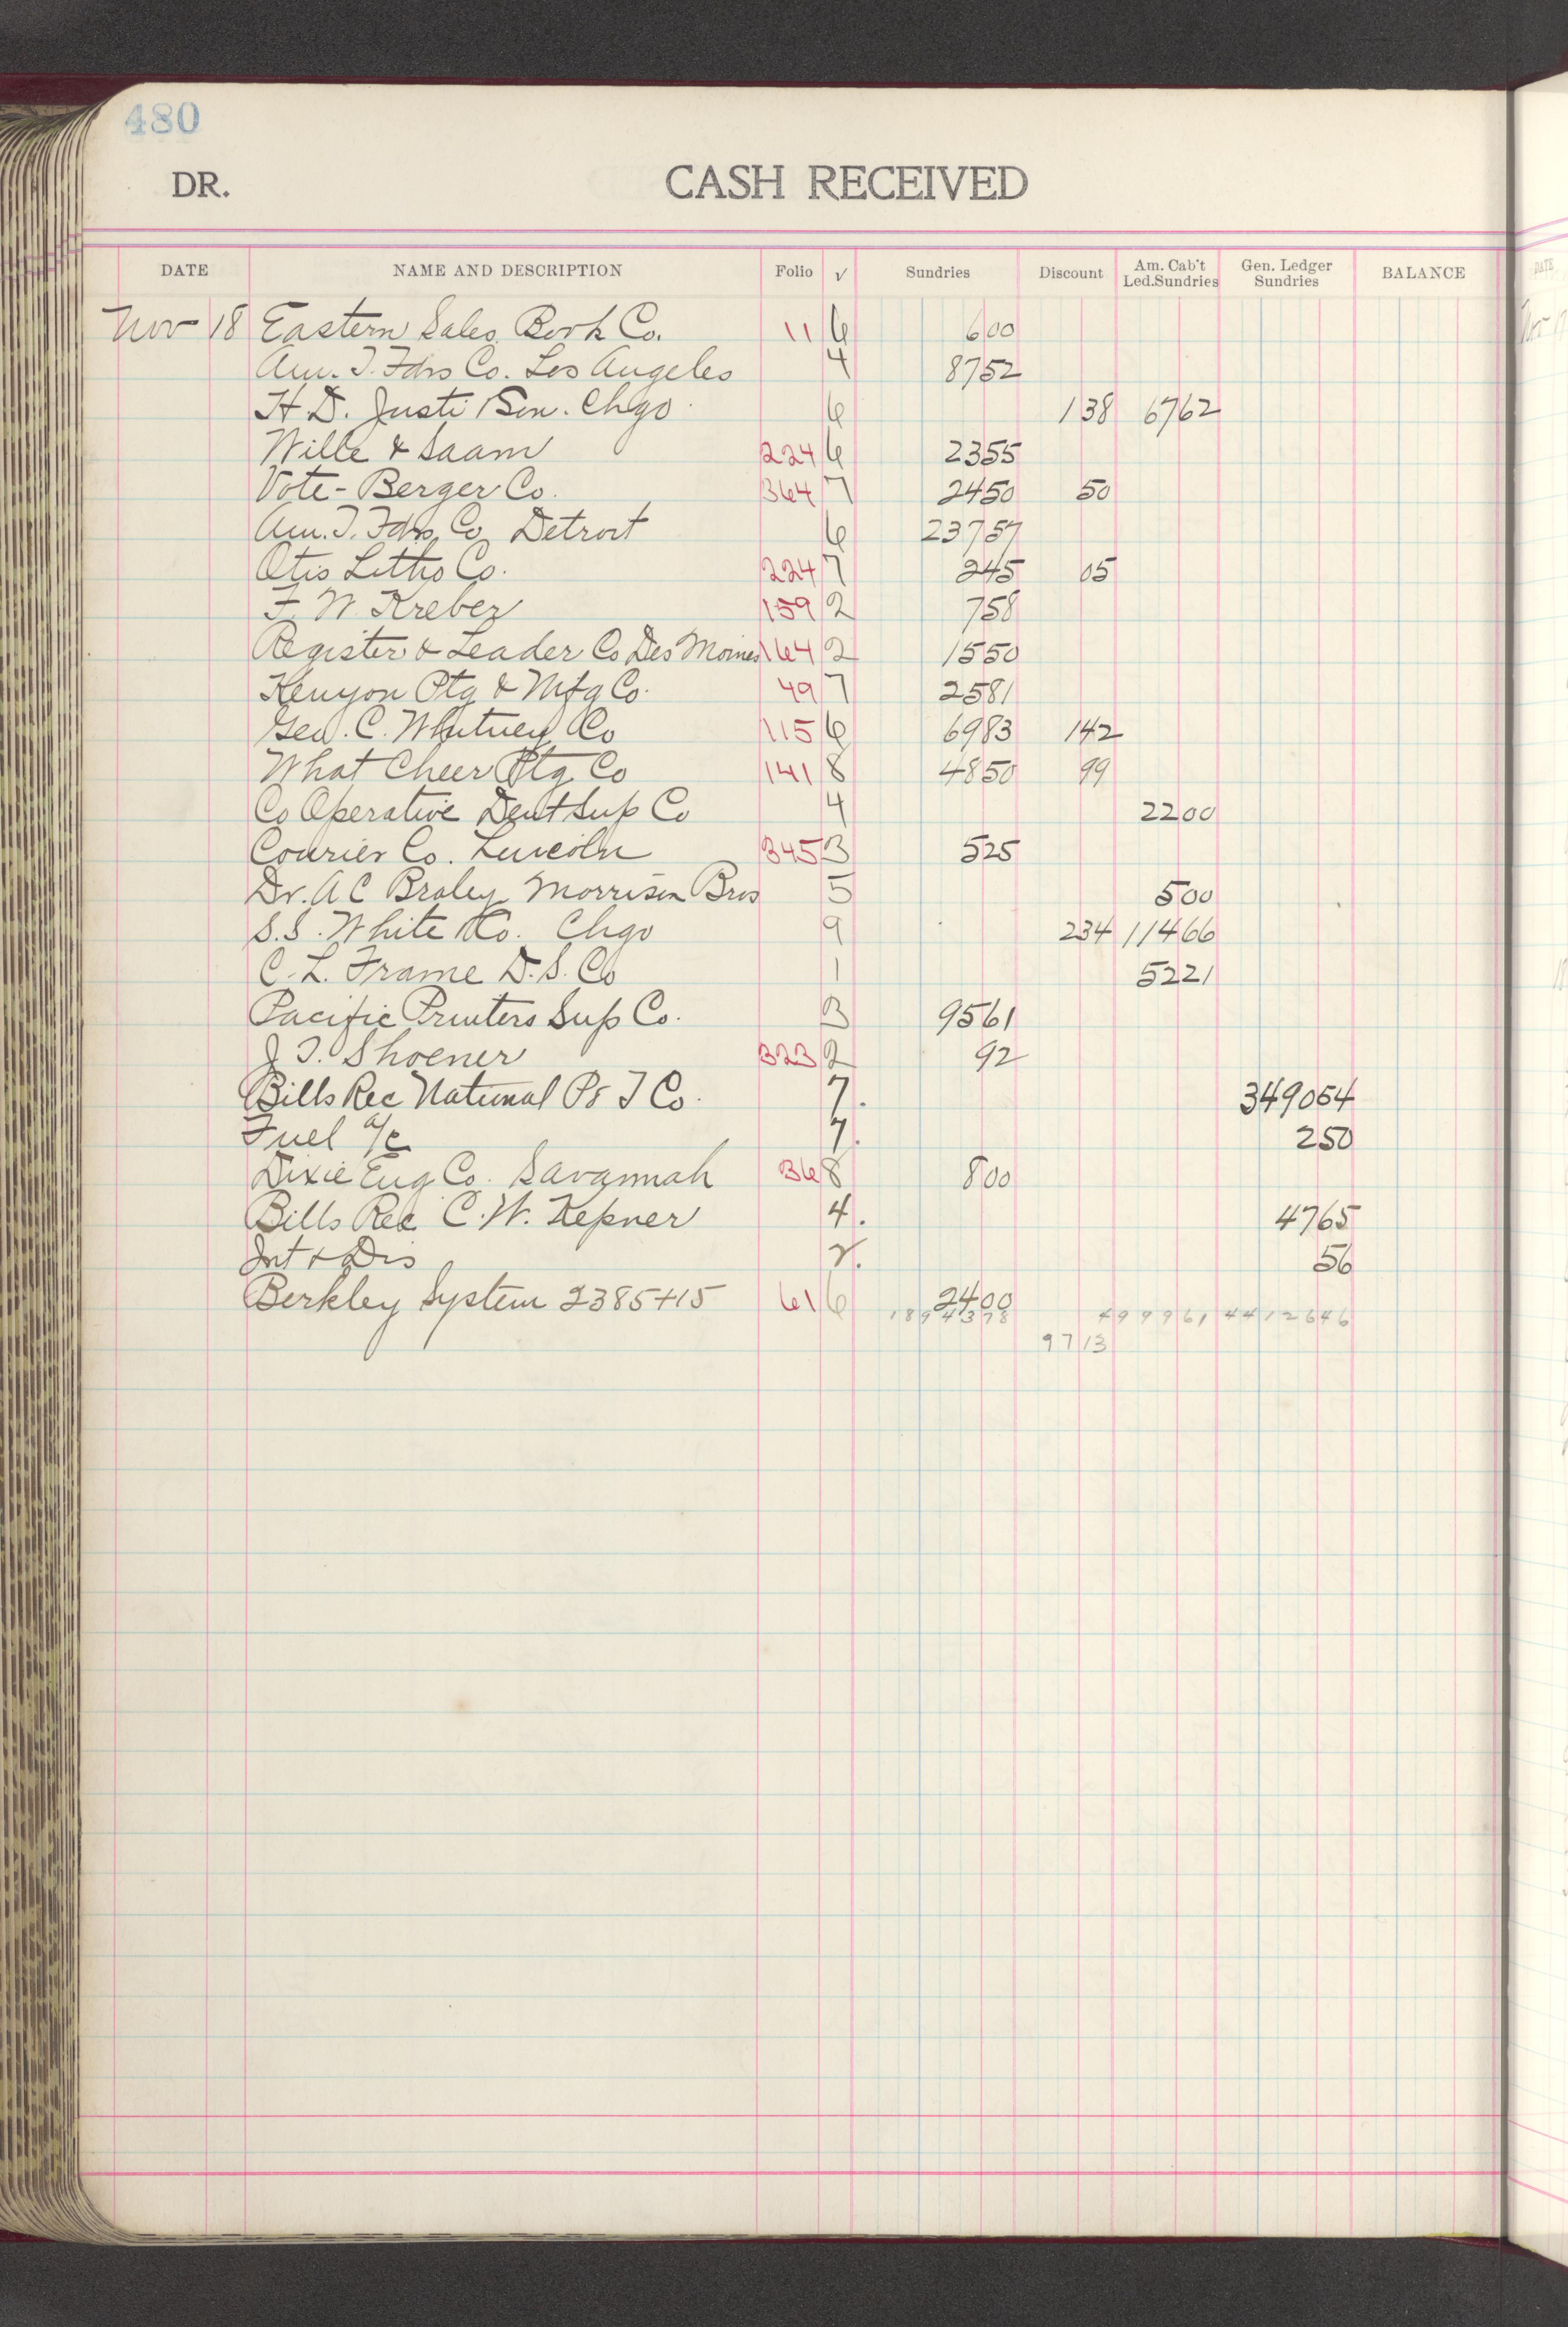 480
DR. CASH RECEIVED
DATE NAME AND DESCRIPTION Folio √ Sundries Discount Am. Cab't Led.Sundries Gen. Ledger Sundries BALANCE
Nov 18 Eastern Sales Book Co. 11 6 600
Am. T. Fdrs Co. Los Angeles 4 8752
H. D. Justi & Son. Chgo. 6 138 6762
Wille & Saam 224 6 2355
Vote-Berger Co. 364 7 2450 50
Am. T. Fdrs Co Detroit 6 23757
Otis Litho Co. 224 7 245 05
F. W. Kreber 159 2 758
Register & Leader Co Des Moines 164 2 1550
Kenyon Ptg & Mfg Co. 49 7 2581
Geo. C. Whitney Co 115 6 6983 142
What Cheer Ptg Co 141 8 4850 99
Co Operative Dent Sup Co 4 2200
Courier Co. Lincoln 345 3 525
Dr. A C Braley Morrison Bros 5 500
S.S. White Co. Chgo 9 234 11466
C. L. Frame D. S. Co 1 5221
Pacific Printers Sup Co. 3 9561
J. T. Shoener 323 2 92
Bills Rec National Ps T Co. 7. 349054
Fuel a/c 7. 250
Dixie Eng Co. Savannah 36 8 800
Bills Rec C. W. Kepner 4. 4765
Int & Dis 2. 56
Berkley System 2385+15 61 6 2400
1894378 499961 4412646
9713